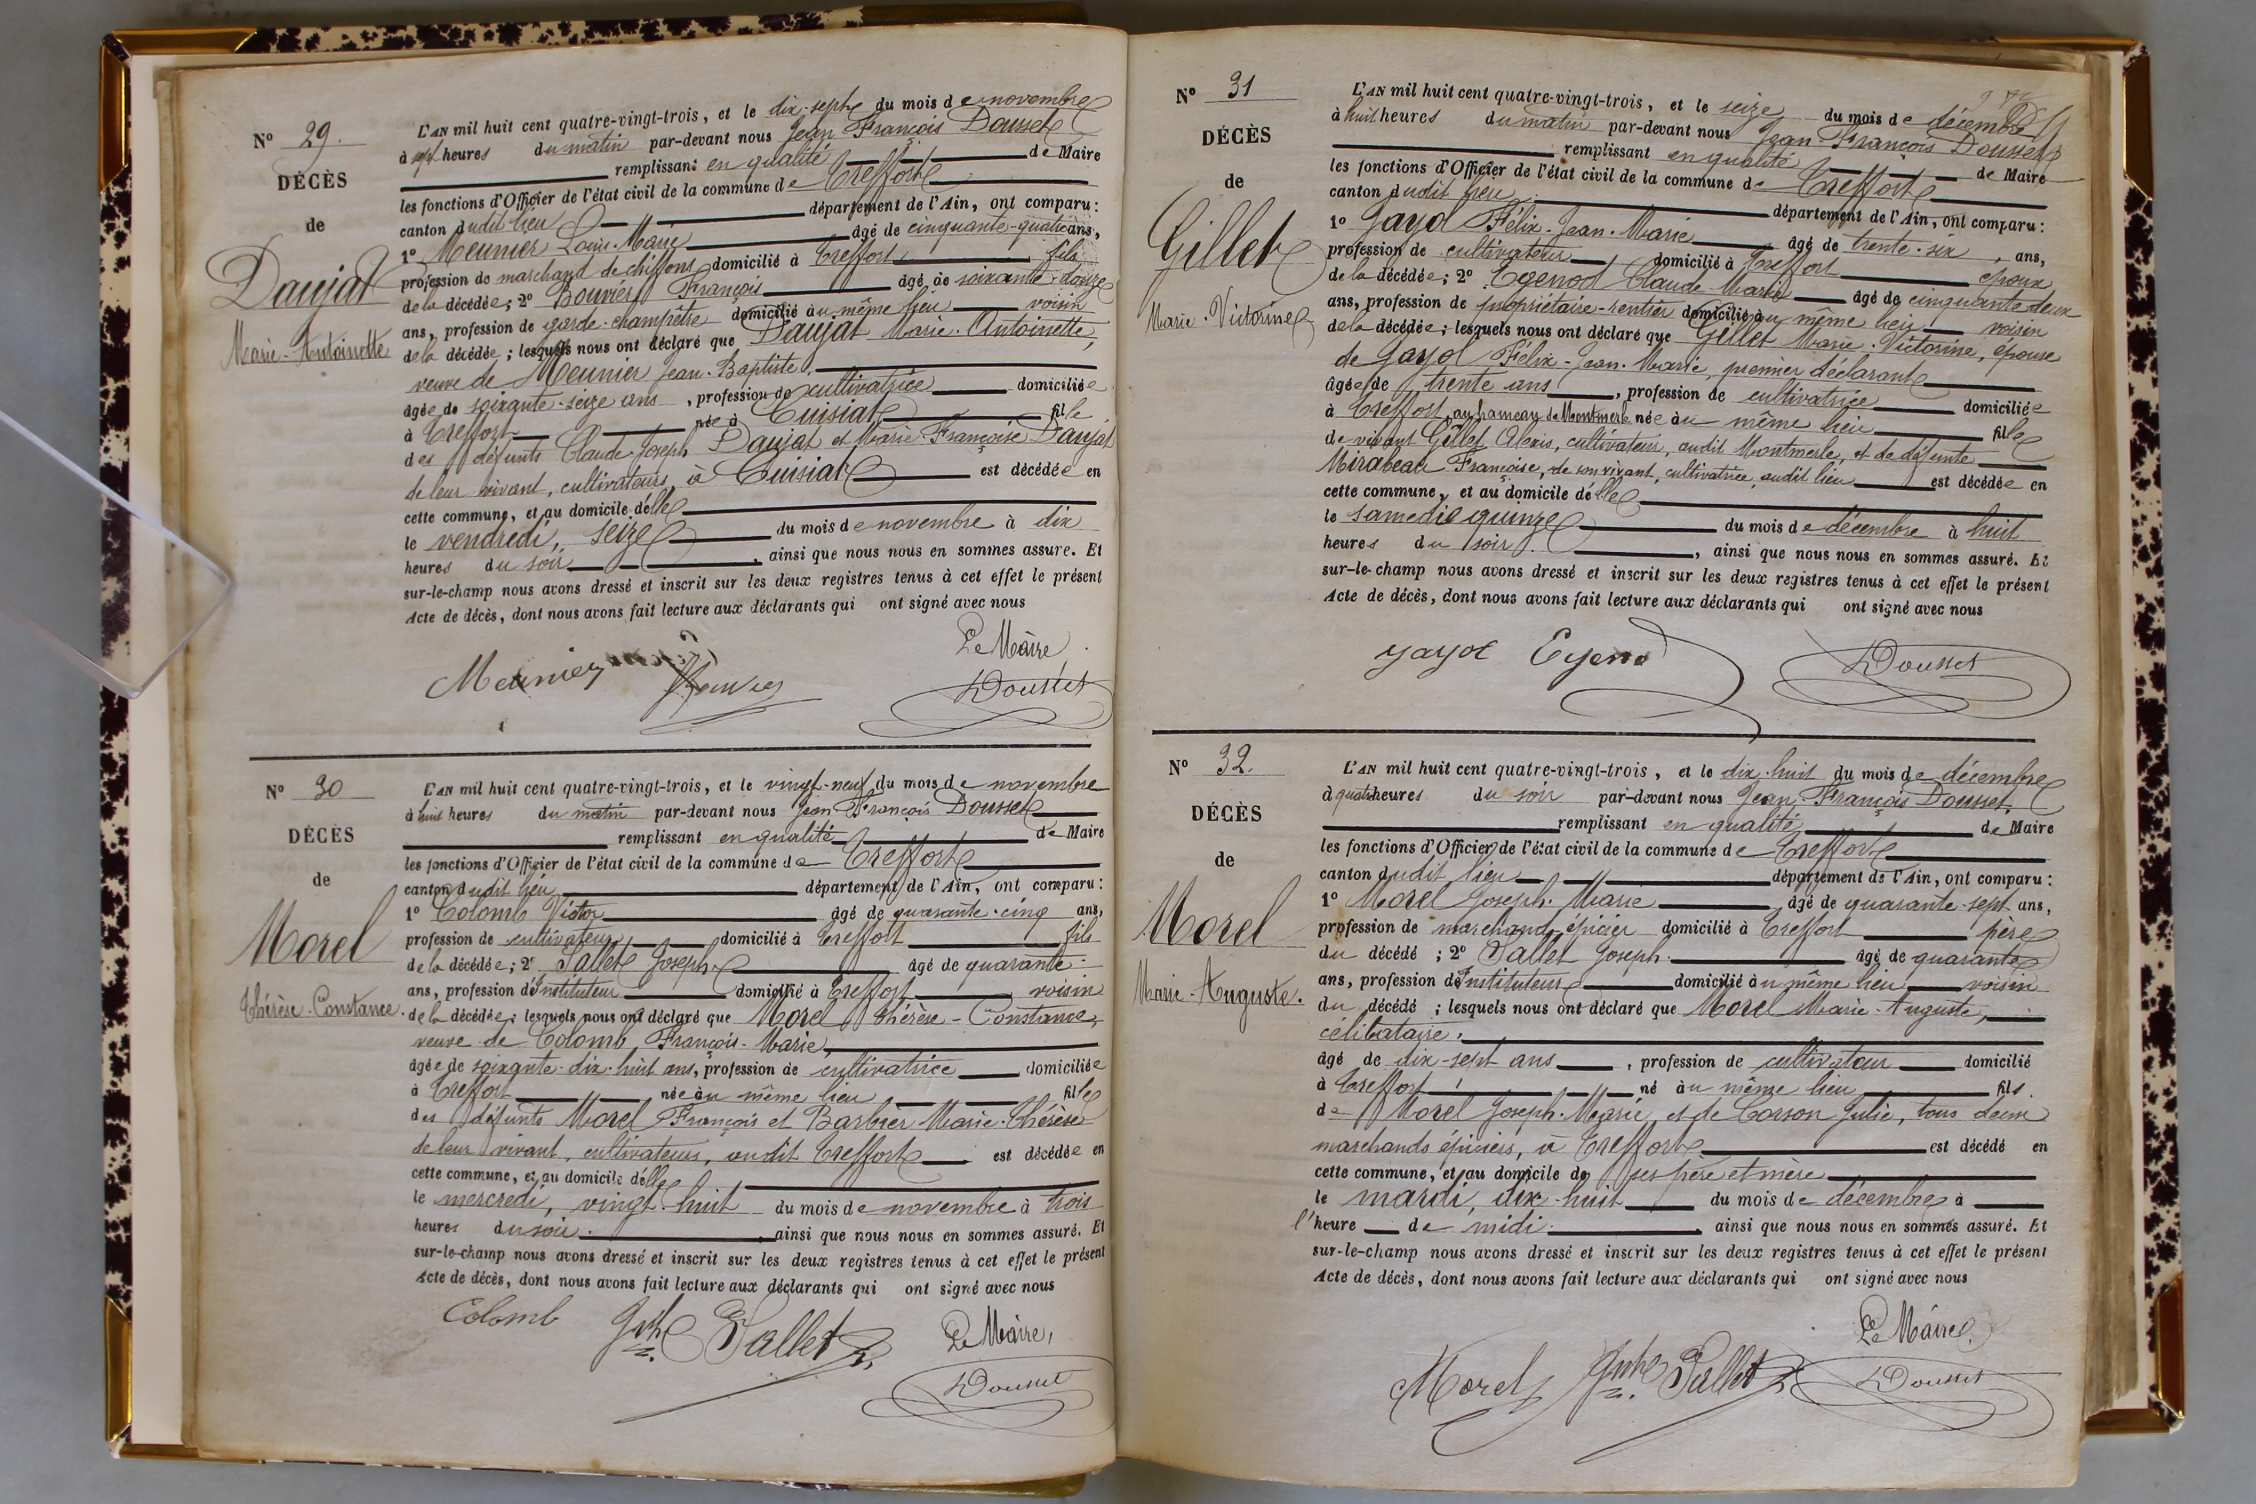 N° 29.
DÉCÈS
de
Daujat
Marie-Antoinette
L'AN mil huit cent quatre-vingt-trois, et le dix-sept du mois de novembre
à sept heures du matin par-devant nous Jean François Dousset
remplissant en qualité de Maire
les fonctions d'Officier de l'état civil de la commune de Treffort
canton dudit lieu département de l'Ain, ont comparu :
1° Meunier Louis-Marie âgé de cinquante-quatre ans,
profession de marchand de chiffons domicilié à Treffort fils
de la décédée ; 2° Bouvier François âgé de soixante-douze
ans, profession de garde-champêtre domicilié au même lieu voisin
de la décédée ; lesquels nous ont déclaré que Daujat Marie-Antoinette,
veuve de Meunier Jean-Baptiste,
âgée de soixante-seize ans, profession de cultivatrice domiciliée
à Treffort née à Cuisiat fille
des défunts Claude-Joseph Daujat et Marie-Françoise Daujat
de leur vivant, cultivateurs, à Cuisiat est décédée en
cette commune, et au domicile d'elle
le vendredi, seize du mois de novembre à dix
heures du soir, ainsi que nous nous en sommes assuré. Et
sur-le-champ nous avons dressé et inscrit sur les deux registres tenus à cet effet le présent
Acte de décès, dont nous avons fait lecture aux déclarants qui ont signé avec nous
Le Maire
Meunier Bouvier Dousset
N° 30
DÉCÈS
de
Morel
Thérèse-Constance.
L'AN mil huit cent quatre-vingt-trois, et le vingt-neuf du mois de novembre
à huit heures du matin par-devant nous Jean-François Dousset
remplissant en qualité de Maire
les fonctions d'Officier de l'état civil de la commune de Treffort
canton dudit lieu département de l'Ain, ont comparu :
1° Colomb Victor âgé de quarante-cinq ans,
profession de cultivateur domicilié à Treffort fils
de la décédée ; 2° Sallet Joseph âgé de quarante
ans, profession d'Instituteur domicilié à Treffort voisin
de la décédée ; lesquels nous ont déclaré que Morel Thérèse-Constance,
veuve de Colomb François-Marie,
âgée de soixante-dix-huit ans, profession de cultivatrice domiciliée
à Treffort née au même lieu fille
des défunts Morel François et Barbier Marie-Thérèse
de leur vivant, cultivateurs, audit Treffort est décédée en
cette commune, et au domicile d'elle
le mercredi, vingt-huit du mois de novembre à trois
heures du soir. ainsi que nous nous en sommes assuré. Et
sur-le-champ nous avons dressé et inscrit sur les deux registres tenus à cet effet le présent
Acte de décès, dont nous avons fait lecture aux déclarants qui ont signé avec nous
Le Maire,
Colomb Jph Sallet Dousset
N° 31
DÉCÈS
de
Gillet
Marie-Victorine
L'AN mil huit cent quatre-vingt-trois, et le seize du mois de décembre
à huit heures du matin par-devant nous Jean-François Dousset
remplissant en qualité de Maire
les fonctions d'Officier de l'état civil de la commune de Treffort
canton dudit lieu département de l'Ain, ont comparu :
1° Jayol Félix-Jean-Marie âgé de trente-six, ans,
profession de cultivateur domicilié à Treffort époux
de la décédée ; 2° Egenod Claude-Marie âgé de cinquante deux
ans, profession de propriétaire-rentier domicilié au même lieu voisin
de la décédée ; lesquels nous ont déclaré que Gillet Marie-Victorine, épouse
de Jayol Félix-Jean-Marie, premier déclarant
âgée de trente ans, profession de cultivatrice domiciliée
à Treffort, au hameau de Montmerle née au même lieu fille
de vivant Gillet Alexis, cultivateur, audit Montmerle, et de défunte
Mirabeau Françoise, de son vivant, cultivatrice, audit lieu est décédée en
cette commune, et au domicile d'elle
le samedi quinze du mois de décembre à huit
heures du soir, ainsi que nous nous en sommes assuré. Et
sur-le-champ nous avons dressé et inscrit sur les deux registres tenus à cet effet le présent
Acte de décès, dont nous avons fait lecture aux déclarants qui ont signé avec nous
Jayol Egenod Dousset
N° 32.
DÉCÈS
de
Morel
Marie-Auguste.
L'AN mil huit cent quatre-vingt-trois, et le dix-huit du mois de décembre
à quatre heures du soir par-devant nous Jean-François Dousset,
remplissant en qualité de Maire
les fonctions d'Officier de l'état civil de la commune de Treffort
canton dudit lieu département de l'Ain, ont comparu :
1° Morel Joseph-Marie âgé de quarante-sept ans,
profession de marchand épicier domicilié à Treffort père
du décédé ; 2° Sallet Joseph. âgé de quarante
ans, profession d'Instituteur domicilié au même lieu voisin
du décédé ; lesquels nous ont déclaré que Morel Marie-Auguste,
célibataire,
âgé de dix-sept ans, profession de cultivateur domicilié
à Treffort, né au même lieu fils
de Morel Joseph-Marie, et de Corson Julie, tous deux
marchands épiciers, à Treffort est décédé en
cette commune, et au domicile de ses père et mère
le mardi, dix-huit du mois de décembre à
l'heure de midi. ainsi que nous nous en sommes assuré. Et
sur-le-champ nous avons dressé et inscrit sur les deux registres tenus à cet effet le présent
Acte de décès, dont nous avons fait lecture aux déclarants qui ont signé avec nous
Le Maire.
Morel Jph Sallet Dousset